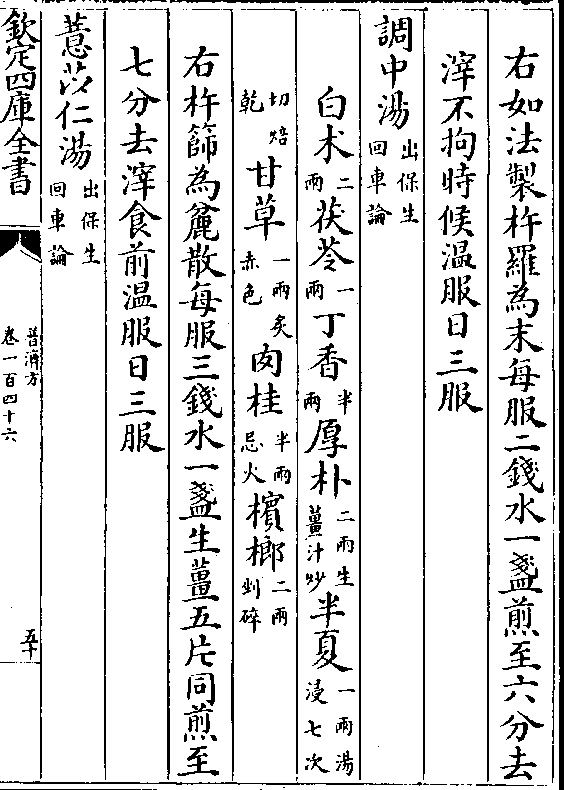 右如法製杵羅為末每服二錢水一盞煎至六分去
滓不拘時候温服日三服
調中湯出保生回車論
白术二兩茯苓一兩丁香半兩厚朴二兩生薑汁炒半夏一兩湯浸七次
切焙乾甘草一兩炙赤色肉桂半兩忌火檳榔二兩剉碎
右杵篩為麄散每服三錢水一盞生薑五片同煎至
七分去滓食前温服日三服
薏苡仁湯出保生回車論
欽定四庫全書
普濟方
卷一百四十六
五十